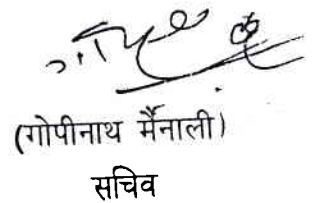 (गोपीनाथ मैनाली)
सचिव